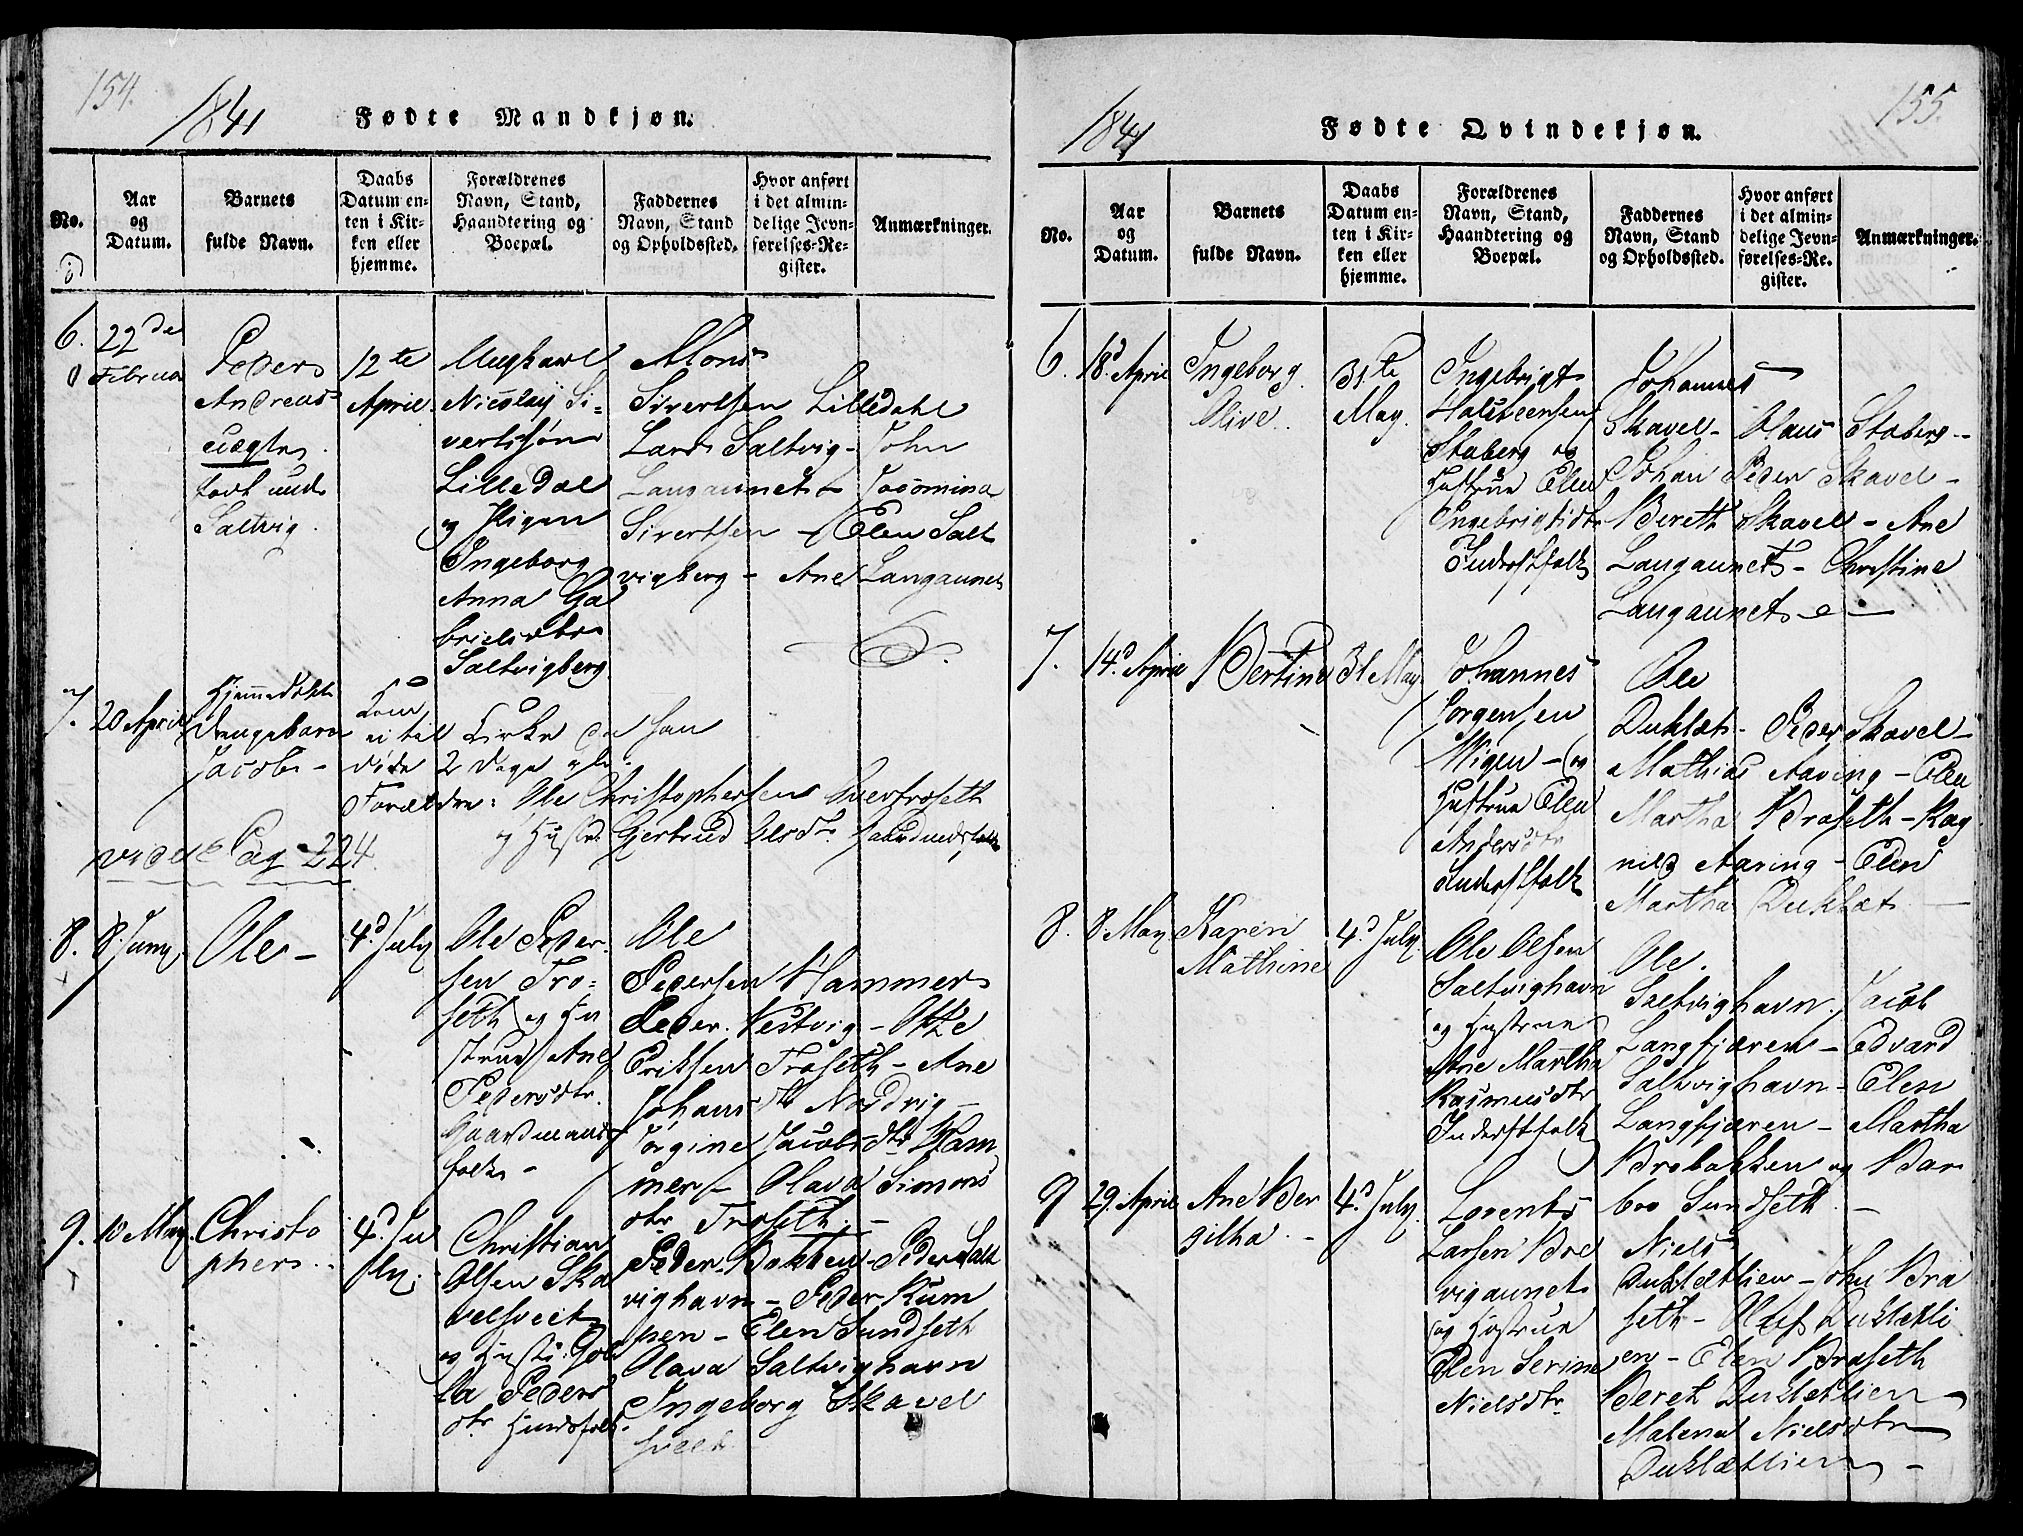 154.
1841 Fødte Mandkjøn.
No.
Aar og Datum.
Barnets fulde Navn.
Daabs Datum enten i Kirken eller hjemme.
Forældrenes Navn, Stand, Haandtering og Boepæl.
Faddernes Navn, Stand og Opholdssted.
Hvor anført i det almindelige Jevnførelses-Register.
Anmærkninger.
6.
22de
Februar
Peder
Andreas
uægte
født unde
Saltvig.
12te
April.
Ungkarl
Nicolay Si-
vertsøn
Lilledal
og Pigen
Ingeborg
Anna Ga
brielsdtr
Saltvigberg
Mons
Sivertsen Lilledahl
Lars Saltvig - John
Langaunet - Jacomina
Sivertsen - Elen Salt
vigberg - Ane Langaunet
7.
20 April
Hjemmedøbt
Drengebarn
Jacob -
Kom
ei til Kirke da han
døde 2 Dage gl.
Forældre: Ole Christophersen Overtroseth
og Hustr Gjertrud Olsdtr Gaardmdsfolk
vide Pag 224.
8.
8 Juny
Ole -
4d July
Ole Peder
sen Tro-
seth og Hu
strue Ane
Pedersdtr.
Gaardmands
folk -
Ole
Pedersen Hammer
Peder Vestvig - Otte
Eriksen Troseth - Ane
Johansdtr Nordvig -
Jørgine Jacobsdtr Ham
mer - Olava Simons
dtr Troseth. -
9.
10 May
Christo
pher -
4d Ju
ly.
Christian
Olsen Ska
velsveet
og Hustr: Gol
la Peders
dtr Huusfolk.
Peder Bakken - Peder Salt
vighavn - Peder Kum
pen - Elen Sundseth
Olava Saltvighavn
Ingeborg Skavel
sveet
155.
1841 Fødte Qvindekjøn.
No.
Aar og Datum.
Barnets fulde Navn.
Daabs Datum enten i Kirken eller hjemme.
Forældrenes Navn, Stand, Haandtering og Boepæl.
Faddernes Navn, Stand og Opholdssted.
Hvor anført i det almindelige Jevnførelses-Re. gister.
Anmærkninger.
6.
18d April
Ingeborg
Olive.
31te
May.
Ingebrigt
Halsteensen
Staberg og
Hustrue Elen
Ingebrigtsdtr
Inderstfolk
Johannes
Skavel - Olaus Staberg -
Johan Peder Skavel -
Bereth Skavel - Ane
Langaunet - Christine
Langaunet -
7.
14d April
Bertine
31 May
Johannes
Jørgensen
Wigen - og
Hustrue Elen
Andersdtr
Inderstfolk
Ole
Duklæt - Peder Skavel -
Mathias Aaving - Elen
Martha Braseth - Rag
nild Aaving - Elen
Martha Duklæt. -
8.
8 May
Karen
Mathine
4d July.
Ole Olsen
Saltvighavn
og Hustrue
Ane Martha
Rasmusdtr
Inderstfolk
Ole
Saltvighavn. Jacob
Langfjæren - Edvard
Saltvighavn - Elen
Langfjæren - Martha
Brobakken og Bar
bro Sundseth. -
9
29 April
Ane Ber
githa. -
4d July.
Lorents
Larsen Bre
vigaunet
og Hustrue
Elen Serine
Nielsdtr
Niels
Duklætlien - John Bra
seth - Oluf Duklætli
en - Elen Braseth
Beret Duklætlien -
Malena Nielsdtr
Duklætlien -